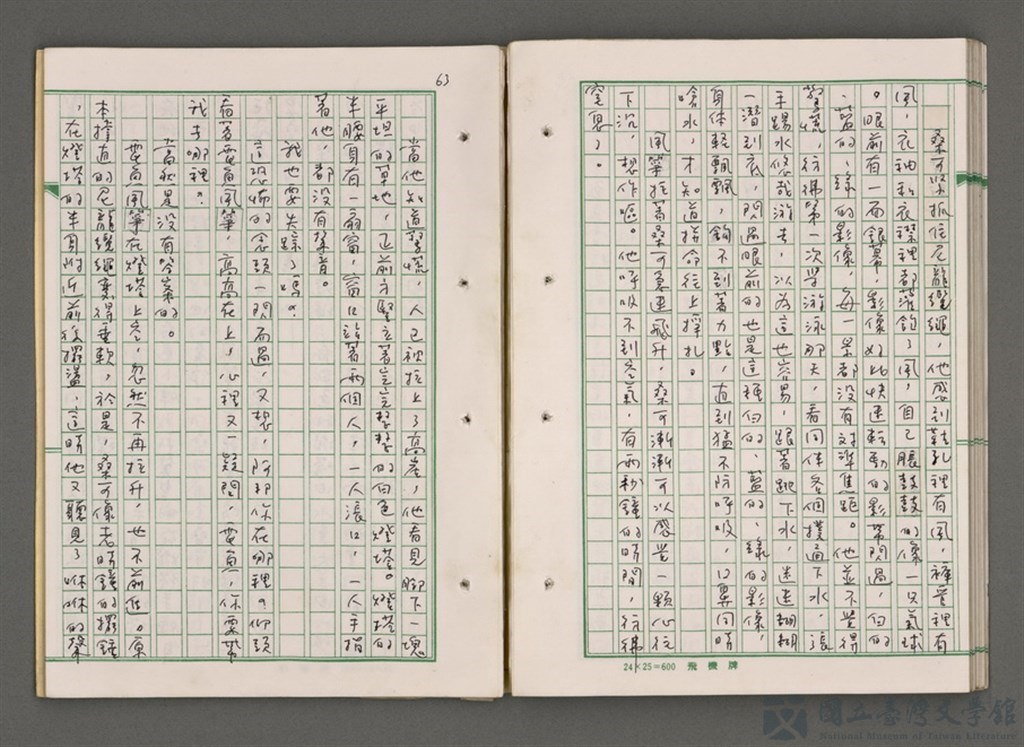 桑可緊抓住尼龍纜繩，他感到鞋孔裡有風，褲管裡有
風，衣袖和衣襟裡都落飽了風，自己脹鼓鼓的像一只氣球
。眼前有一面銀幕，影像好比快速轉動的影帶閃過，白的
、藍的、綠的影像，每一景都沒有對準焦距。他並不覺得
驚慌，彷彿第一次學游泳那天，看同伴各個撲通下水，張
手踢水悠哉游去，以為這也容易，跟著跳下水，迷迷糊糊
一潛到底，閃過眼前的也是這種白的、藍的、綠的影像，
身体輕飄飄，鉤不到著力點，直到猛不防呼吸，口鼻同時
嗆水，才知道拼命往上掙扎。
風箏拉著桑可急速飛升，桑可漸漸可以感覺一顆心往
下沉，想作嘔。他呼吸不到空氣，有兩秒鐘的時間，彷彿
窒息了。
24×25=600 飛機牌
63
當他知道驚慌，人已被拉上了高崖，他看見腳下一塊
平坦的草地，正前方豎立著完完整整的白色燈塔。燈塔的
半腰身有一扇窗，窗口站著兩個人，一人張口，一人手指
著他，都沒有聲音。
我也要失踪了嗎？
這恐怖的念頭一閃而過，又想，阿邦你在哪裡？仰頭
看著要負風箏，高高在上，心裡又一疑問，要負，你要帶
我去哪裡？
當然是沒有答案的。
要負風箏在燈塔上空，忽然不再拉升，也不前進。原
本撐直的尼龍纜繩變得垂軟，於是，桑可像老時鐘的擺錘
，在燈塔的半身附近前後擺盪，這時他又聽見了咻咻的聲
國立臺灣文學館
National Museum of Taiwan Literature